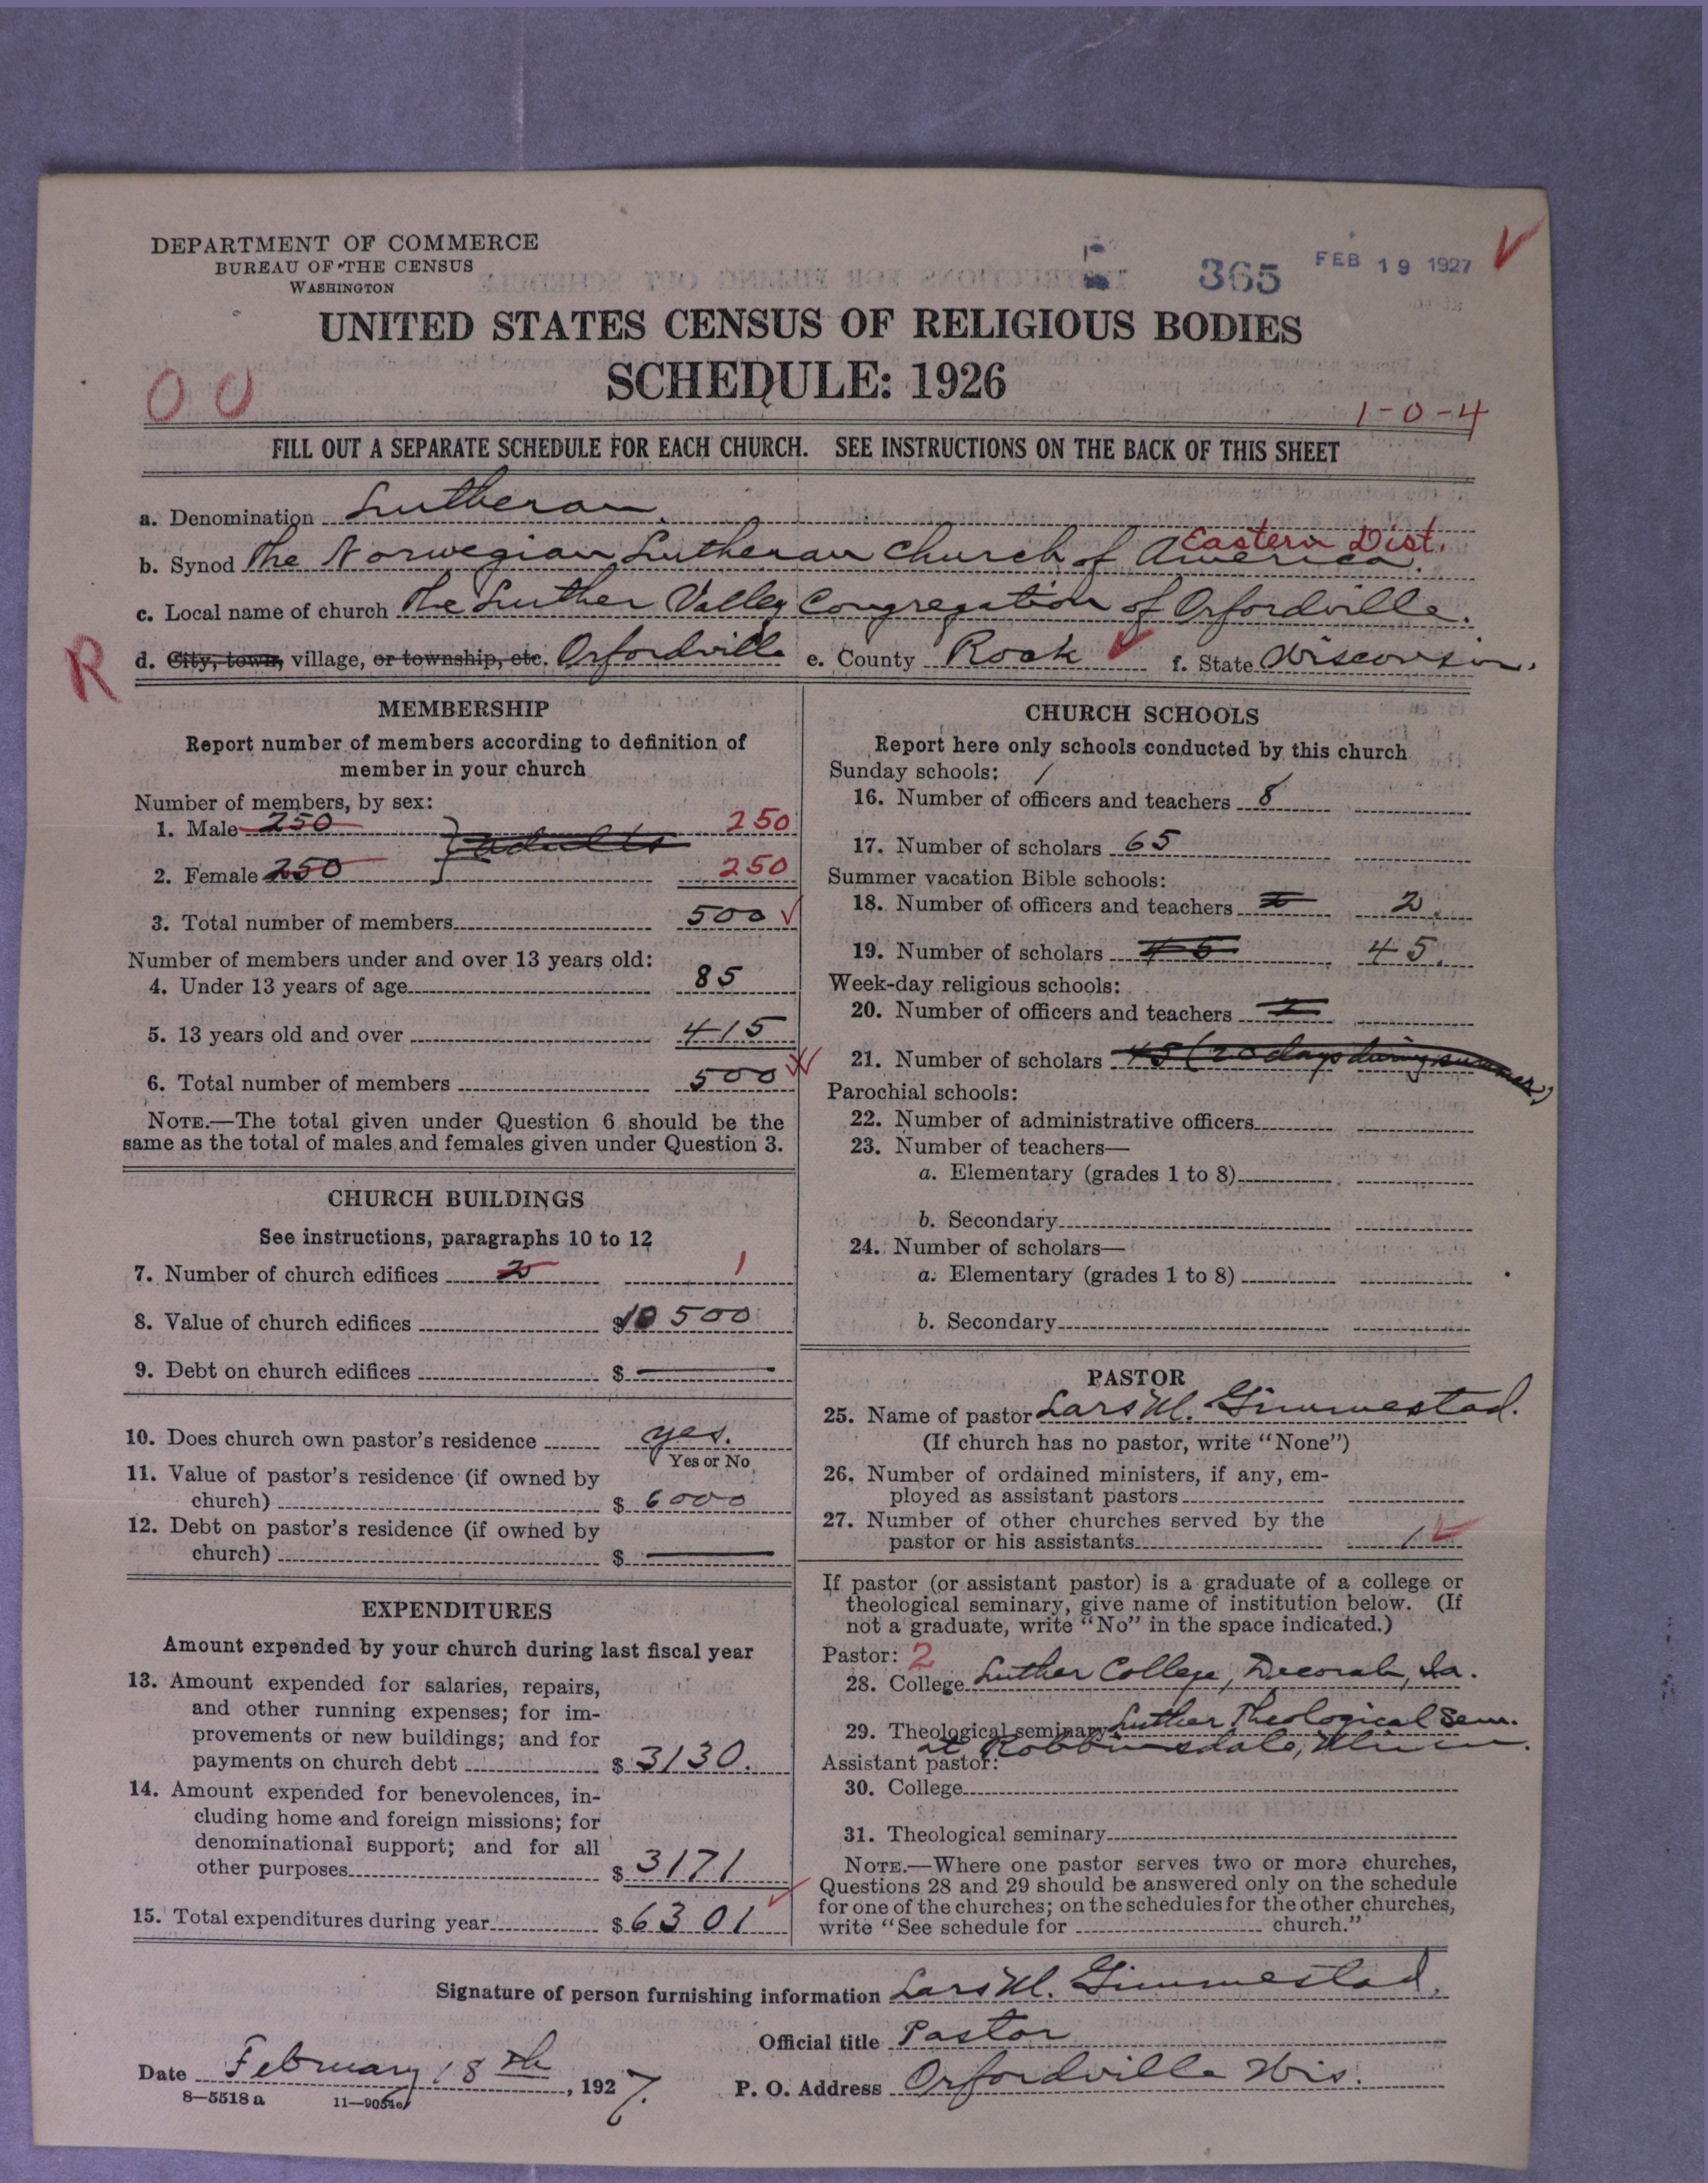 DEPARTMENT OF COMMERCE
BUREAU OF THE CENSUS
WASHINGTON
365 FEB 19 1927
UNITED STATES CENSUS OF RELIGIOUS BODIES
SCHEDULE: 1926
00
1-0-4
FILL OUT A SEPARATE SCHEDULE FOR EACH CHURCH. SEE INSTRUCTIONS ON THE BACK OF THIS SHEET
a. Denomination Lutheran.
b. Synod The Norwegian Lutheran Church of America. Eastern Dist.
c. Local name of church The Luther Valley Congregation of Orfordville.
R d. City, town, village, or township, etc. Orfordville e. County Rock f. State Wisconsin.
MEMBERSHIP
Report number of members according to definition of
member in your church
Number of members, by sex:
1. Male 250 250
adults
2. Female 250 250
3. Total number of members 500
Number of members under and over 13 years old:
4. Under 13 years of age 85
5. 13 years old and over 415
6. Total number of members 500
NOTE.—The total given under Question 6 should be the
same as the total of males and females given under Question 3.
CHURCH BUILDINGS
See instructions, paragraphs 10 to 12
7. Number of church edifices 2 1
8. Value of church edifices $10500
9. Debt on church edifices $ —
10. Does church own pastor's residence yes.
Yes or No
11. Value of pastor's residence (if owned by
church) $ 6000
12. Debt on pastor's residence (if owned by
church) $ —
EXPENDITURES
Amount expended by your church during last fiscal year
13. Amount expended for salaries, repairs,
and other running expenses; for im-
provements or new buildings; and for
payments on church debt $ 3130.
14. Amount expended for benevolences, in-
cluding home and foreign missions; for
denominational support; and for all
other purposes $ 3171
15. Total expenditures during year $ 6301
CHURCH SCHOOLS
Report here only schools conducted by this church
Sunday schools: 1
16. Number of officers and teachers 8
17. Number of scholars 65
Summer vacation Bible schools:
18. Number of officers and teachers 2.
19. Number of scholars 45 45.
Week-day religious schools:
20. Number of officers and teachers 2
21. Number of scholars 45 (20 days during summer)
Parochial schools:
22. Number of administrative officers
23. Number of teachers—
a. Elementary (grades 1 to 8)
b. Secondary
24. Number of scholars—
a. Elementary (grades 1 to 8)
b. Secondary
PASTOR
25. Name of pastor Lars M. Gimmestad.
(If church has no pastor, write "None")
26. Number of ordained ministers, if any, em-
ployed as assistant pastors
27. Number of other churches served by the
pastor or his assistants 1
If pastor (or assistant pastor) is a graduate of a college or
theological seminary, give name of institution below. (If
not a graduate, write "No" in the space indicated.)
Pastor: 2
28. College Luther College, Decorah, Ia.
29. Theological seminary Luther Theological Sem.
at Robbinsdale, Minn.
Assistant pastor:
30. College
31. Theological seminary
NOTE.—Where one pastor serves two or more churches,
Questions 28 and 29 should be answered only on the schedule
for one of the churches; on the schedules for the other churches,
write "See schedule for church."
Signature of person furnishing information Lars M. Gimmestad.
Official title Pastor
Date February 18th, 1927. P. O. Address Orfordville Wis.
8—5518 a